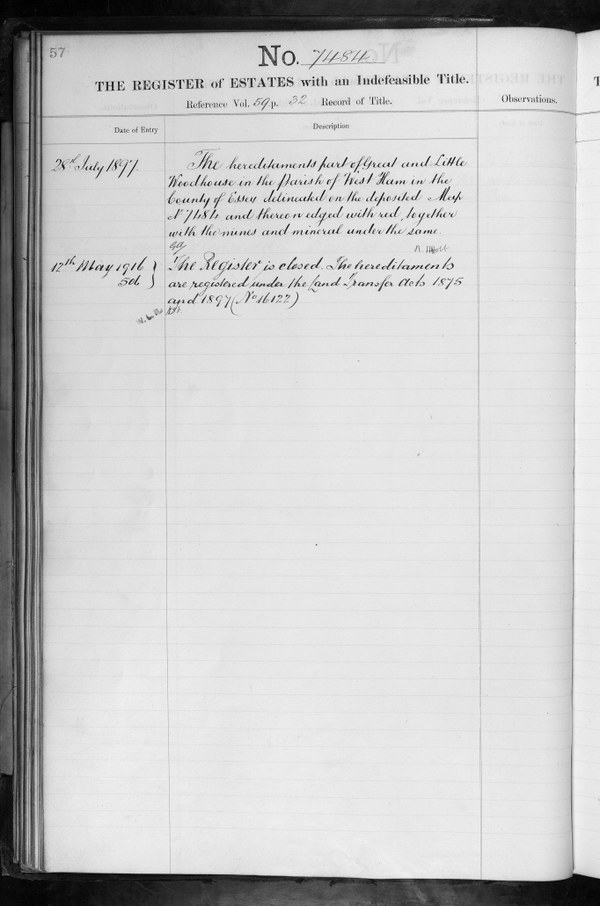 57
No. 7484
THE REGISTER of ESTATES with an Indefeasible Title.
Reference Vol. 59 p. 32 Record of Title.
Observations.
Date of Entry
Description
28th July 1897
The hereditaments part of Great and Little
Woodhouse in the Parish of West Ham in the
County of Essex delineated on the deposited Map
No 7484 and thereon edged with red, together
with the mines and mineral under the same.
12th May 1916
The Register is closed. The hereditaments
are registered under the Land Transfer Acts 1875
and 1897 (No 16122)